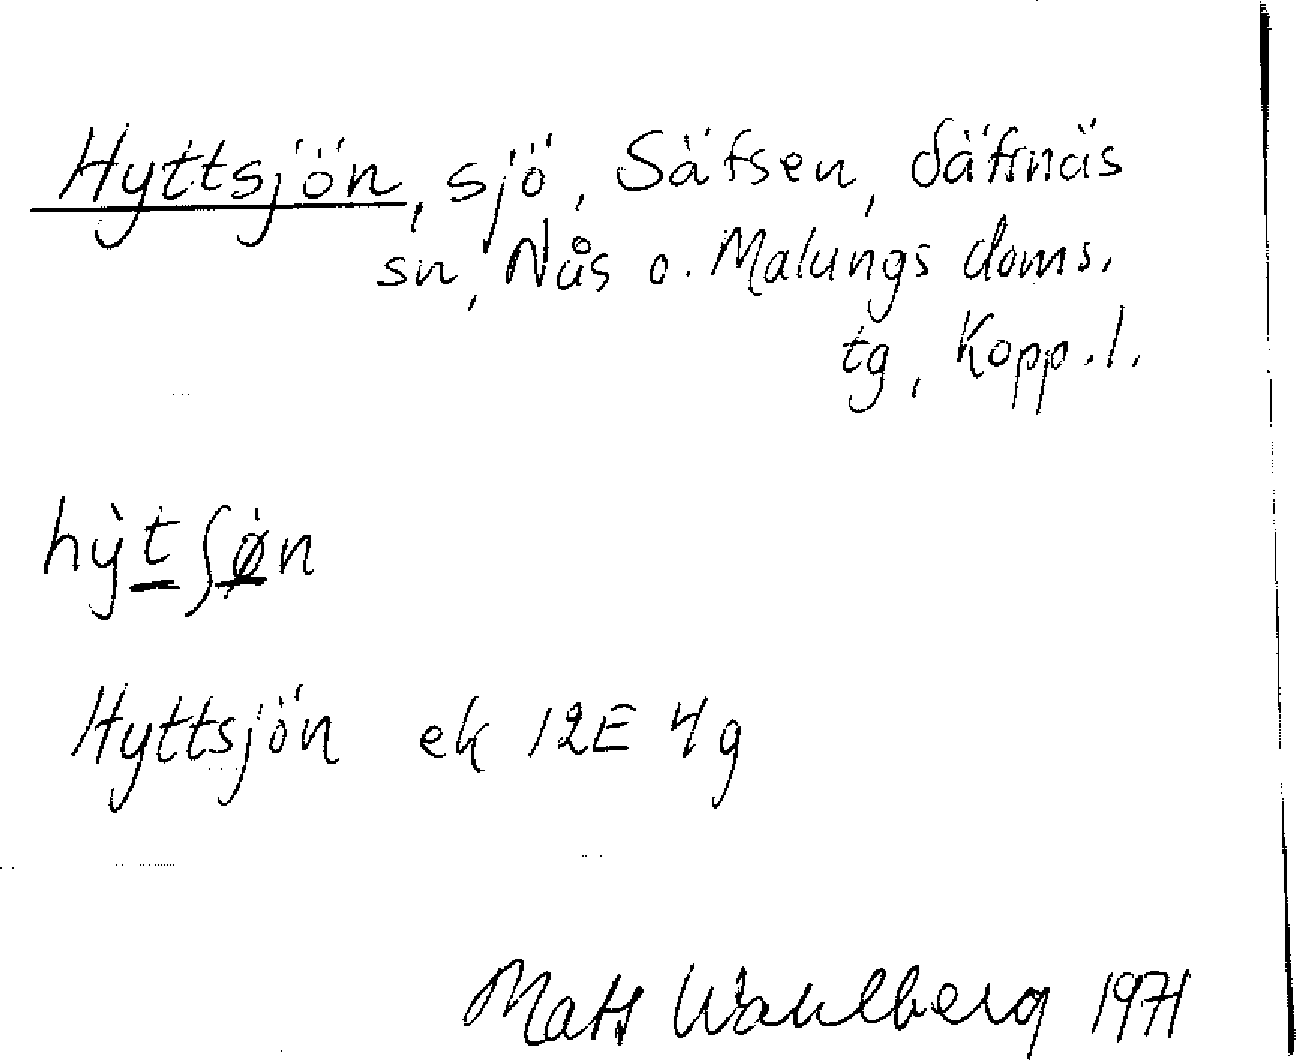 Hyttsjön, sjö, Säfsen, Säfsnäs
sn, Nås o. Malungs doms.
tg, Kopp. l.
hỳt ʃøn
Hyttsjön ek 12E 4g
Mats Wahlberg 1971